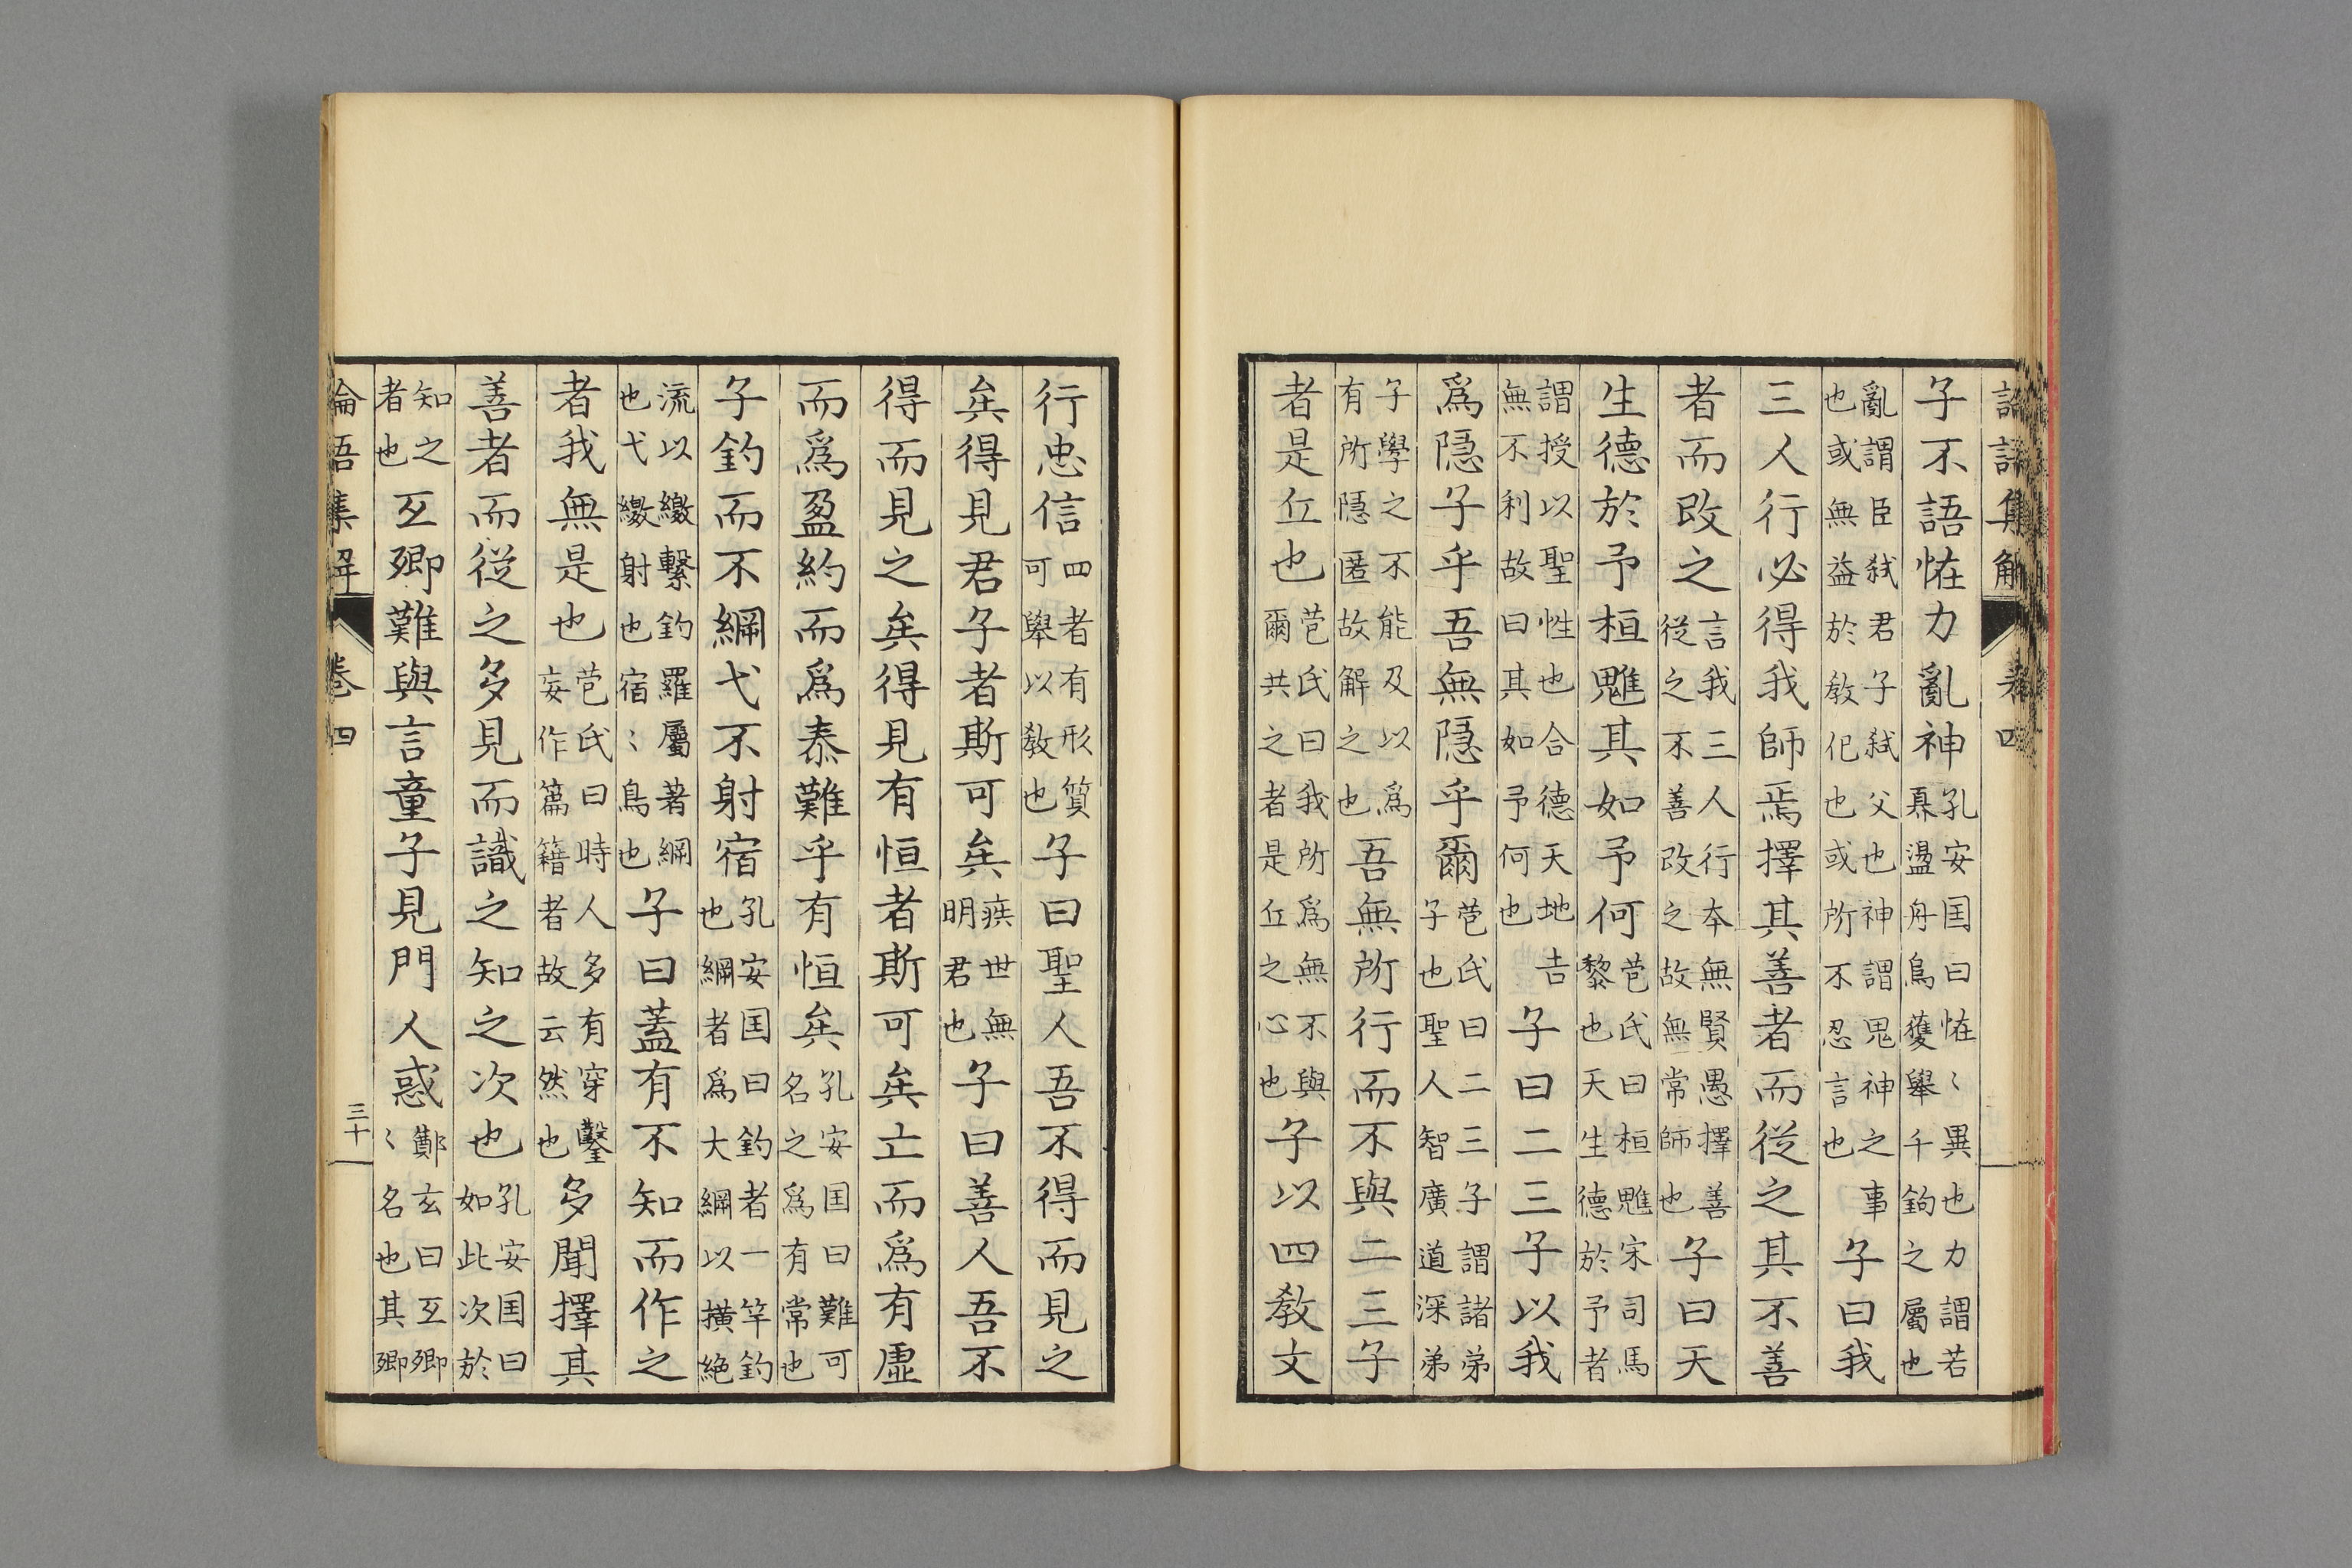 論語集解　卷四
子不語恠力亂神孔安国曰恠〻異也力謂若奡盪舟烏獲舉千鈞之屬也
亂謂臣弑君子弑父也神謂鬼神之事也或無益於敎化也或所不忍言也子曰我
三人行必得我師焉擇其善者而從之其不善
者而改之言我三人行本無賢愚擇善從之不善改之故無常師也子曰天
生德於予桓魋其如予何苞氏曰桓魋宋司馬黎也天生德於予者
謂授以聖性也合德天地吉無不利故曰其如予何也子曰二三子以我
爲隱子乎吾無隱乎爾苞氏曰二三子謂諸弟子也聖人智廣道深弟
子學之不能及以爲有所隱匿故解之也吾無所行而不與二三子
者是丘也苞氏曰我所爲無不與爾共之者是丘之心也子以四敎文
行忠信四者有形質可舉以敎也子曰聖人吾不得而見之
矣得見君子者斯可矣疾世無明君也子曰善人吾不
得而見之矣得見有恒者斯可矣亡而爲有虛
而爲盈約而爲泰難乎有恒矣孔安国曰難可名之爲有常也
子釣而不綱弋不射宿孔安国曰釣者一竿釣也綱者爲大綱以横絶
流以繳繫釣羅屬著綱也弋繳射也宿〻鳥也子曰蓋有不知而作之
者我無是也苞氏曰時人多有穿鑿妄作篇籍者故云然也多聞擇其
善者而從之多見而識之知之次也孔安国曰如此次於
知之者也互鄉難與言童子見門人惑鄭玄曰互鄉〻名也其鄉
論語集解　卷四　三十